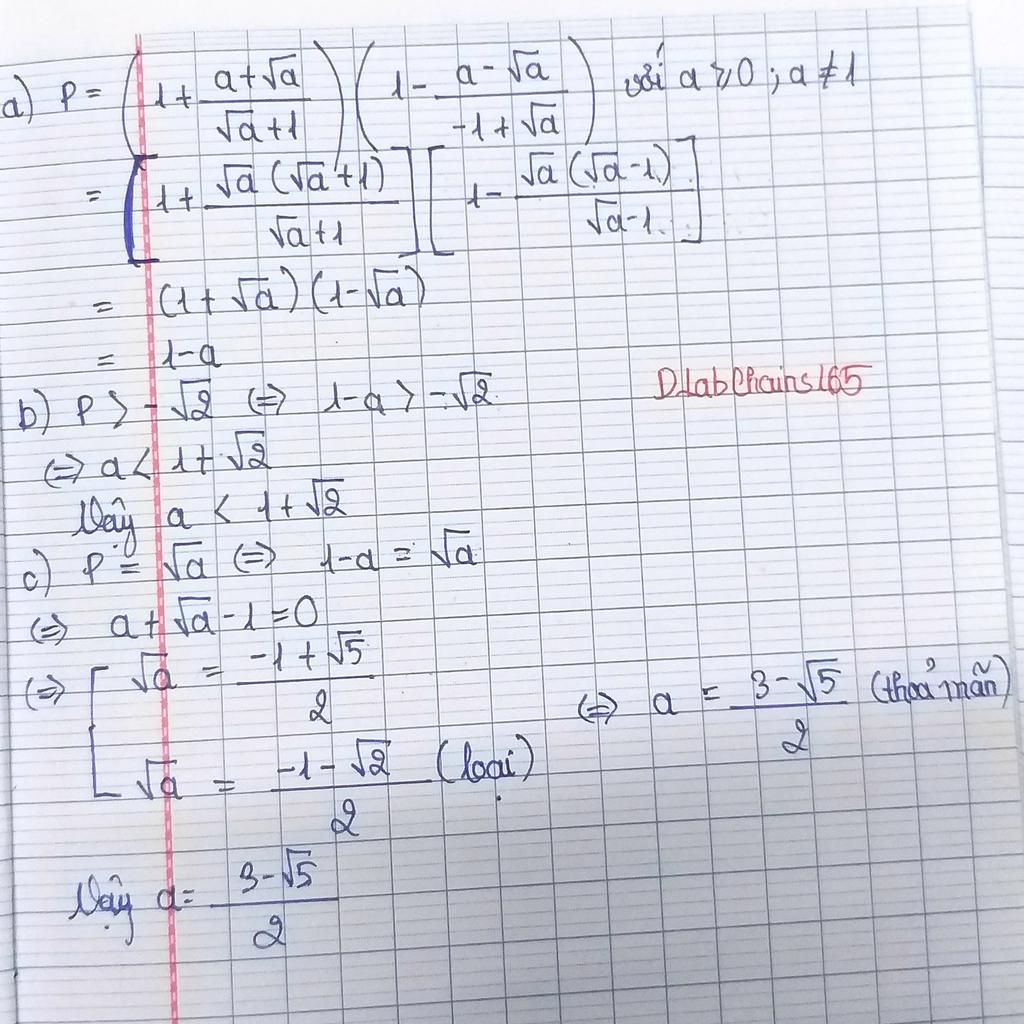 a) P = (1 + (a + √a)/(√a + 1)) (1 - (a - √a)/(-1 + √a)) với a ≥ 0 ; a ≠ 1
= [1 + √a (√a + 1)/(√a + 1)] [1 - √a (√a - 1)/(√a - 1)]
= (1 + √a) (1 - √a)
= 1 - a
b) P > -√2 ⇔ 1 - a > -√2
DlabChains165
⇔ a < 1 + √2
Vậy a < 1 + √2
c) P = √a ⇔ 1 - a = √a
⇔ a + √a - 1 = 0
⇔ [ √a = (-1 + √5)/2 ⇔ a = (3 - √5)/2 (thoả mãn)
√a = (-1 - √2)/2 (loại)
Vậy a = (3 - √5)/2